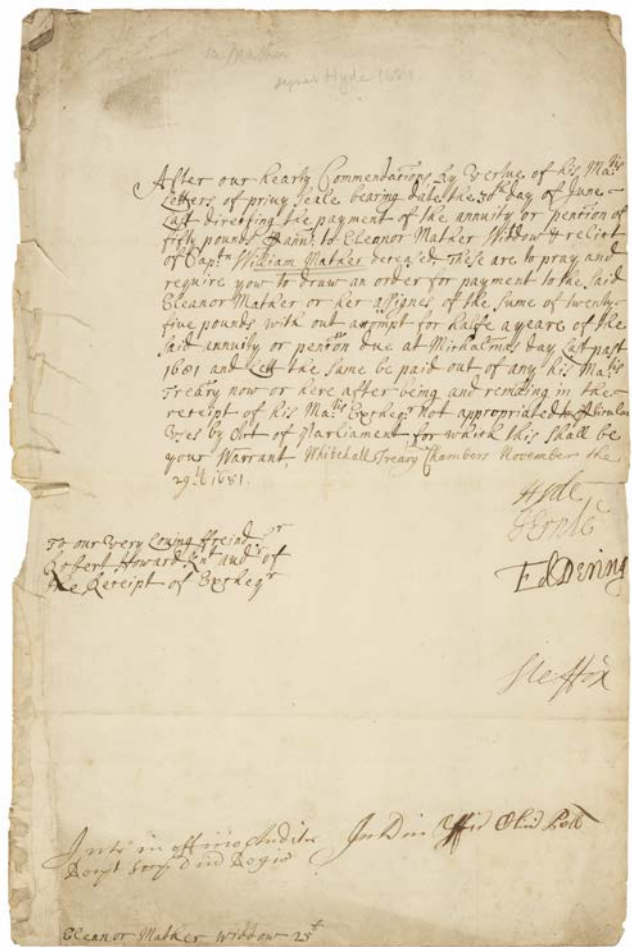 Mather
signed Hyde 1681
After our hearty Commendacons By Vertue of his Ma.tis
Letters of privy Seale bearing date the 30th day of June
Last directing the payment of the annuity or pencion of
fifty pounds P ann. to Eleonor Mather Widdow & relict
of Capt.n William Mather deceased. These are to pray and
require you to draw an order for payment to the said
Eleanor Mather or her assignes of the sume of twenty
five pounds with out accompt for halfe a yeare of the
said annuity or pencon due at Michalmas day Last past
1681 and Lett the same be paid out of any his Ma.tis
Treary now or here after being and remaing in the
receipt of his Ma.tis Excheqr Not appropriated to
Uses by Act of Parliament for which this shall be
your Warrant. Whitehall Treary Chambers November the
29th 1681.
Hyde
JErnle
Ed Dering
Ste ffox
To our Very Loving ffreind Sr
Robert Howard Knt audr of
the Receipt of Excheqr
Intr in officio Auditor
Recpt Scrip D nd Regis
Int in Offic Clici Pell
Eleanor Mather widdow 25